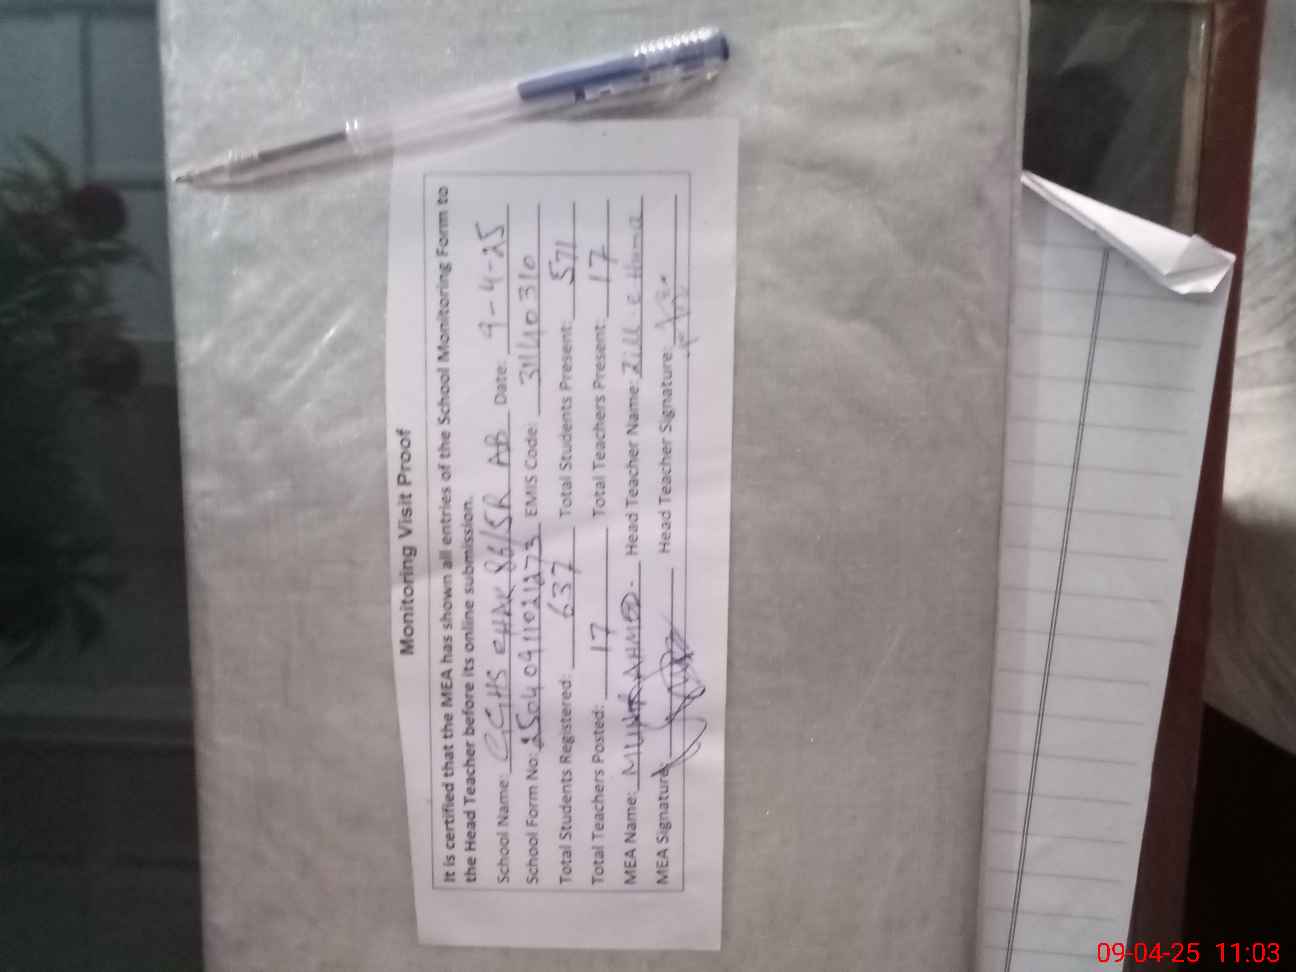 Monitoring Visit Proof
It is certified that the MEA has shown all entries of the School Monitoring Form to
the Head Teacher before its online submission.
School Name: GGHS CHAK 86/5R AB Date: 9-4-25
School Form No: 25040911021273 EMIS Code: 31140310
Total Students Registered: 637 Total Students Present: 571
Total Teachers Posted: 17 Total Teachers Present: 17
MEA Name: AHMED Head Teacher Name: Zill e Huma
MEA Signature: Head Teacher Signature:
09-04-25 11:03